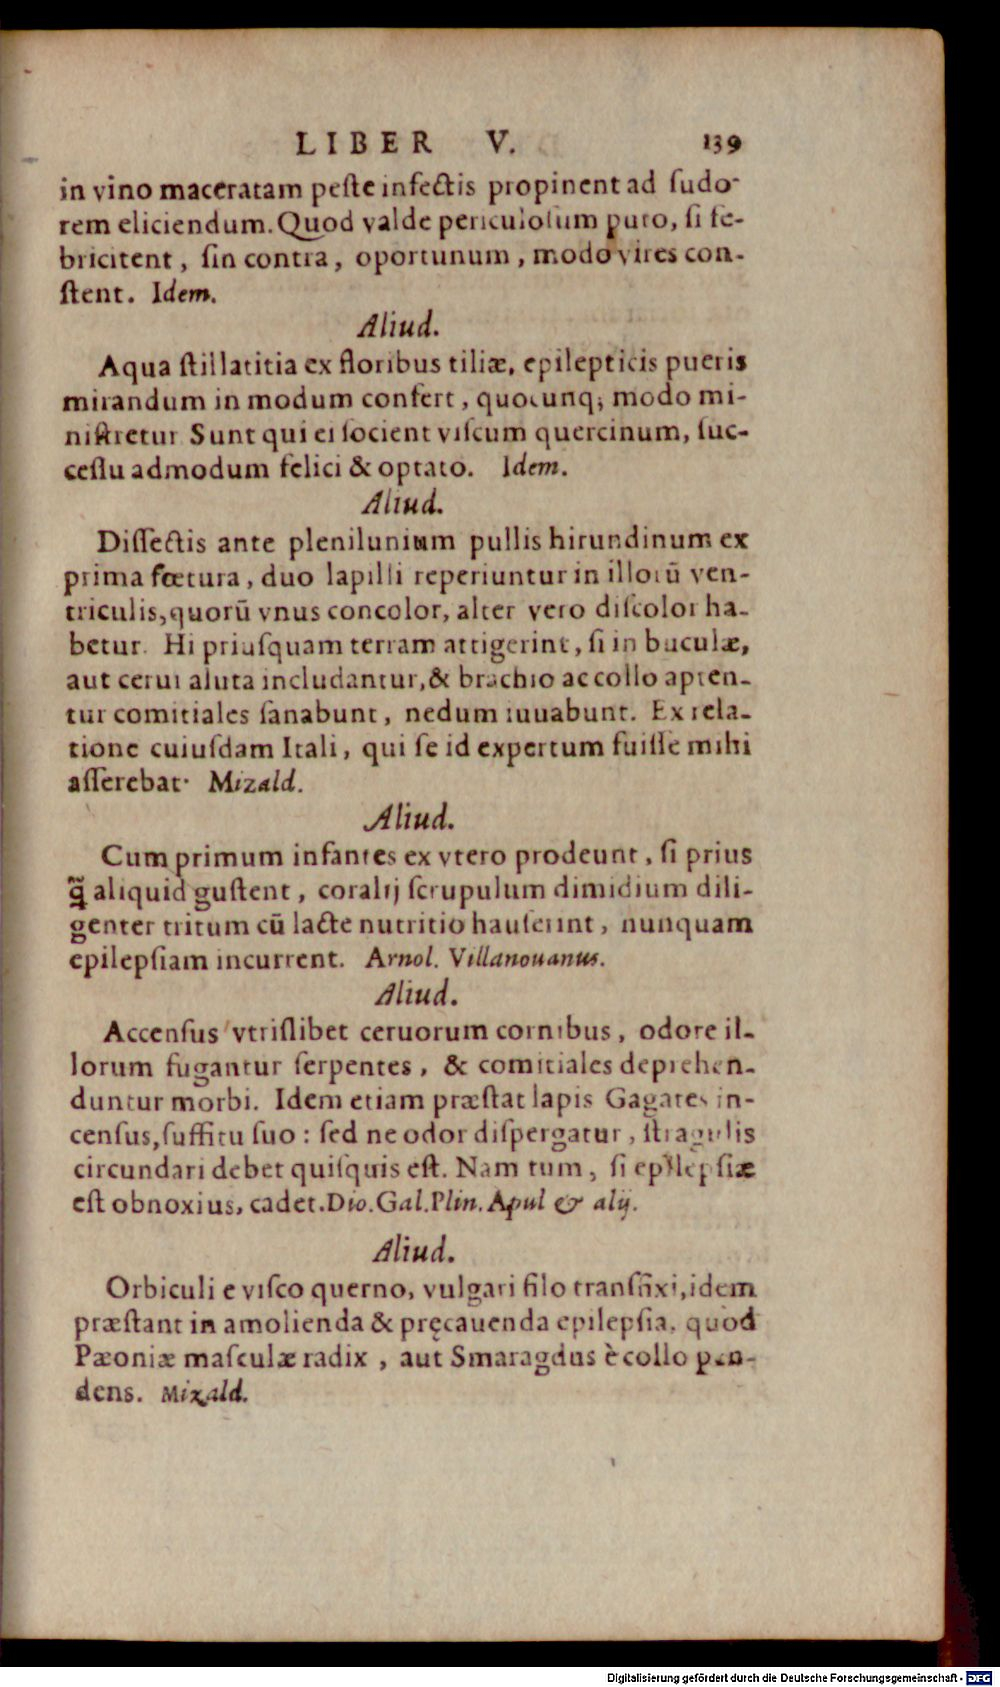 LIBER V. 139
in vino maceratam peſte infectis propinent ad ſudo-
rem eliciendum. Quod valde periculoſum puto, ſi fe-
bricitent, ſin contra, oportunum, modo vires con-
ſtent. Idem.
Aliud.
Aqua ſtillatitia ex floribus tiliæ, epilepticis pueris
mirandum in modum confert, quocunq; modo mi-
niſtretur Sunt qui ei ſocient viſcum quercinum, ſuc-
ceſſu admodum felici & optato. Idem.
Aliud.
Diſſectis ante plenilunium pullis hirundinum ex
prima fœtura, duo lapilli reperiuntur in illorū ven-
triculis, quorū vnus concolor, alter vero diſcolor ha-
betur. Hi priuſquam terram attigerint, ſi in buculæ,
aut cerui aluta includantur, & brachio ac collo apten-
tur comitiales ſanabunt, nedum iuuabunt. Ex rela-
tione cuiuſdam Itali, qui ſe id expertum fuiſſe mihi
aſſerebat· Mizald.
Aliud.
Cum primum infantes ex vtero prodeunt, ſi prius
q̃ aliquid guſtent, coralij ſcrupulum dimidium dili-
genter tritum cū lacte nutritio hauſerint, nunquam
epilepſiam incurrent. Arnol. Villanouanus.
Aliud.
Accenſus vtriſlibet ceruorum cornibus, odore il-
lorum fugantur ſerpentes, & comitiales deprehen-
duntur morbi. Idem etiam præſtat lapis Gagates in-
cenſus, ſuffitu ſuo: ſed ne odor diſpergatur, ſtragulis
circundari debet quiſquis eſt. Nam tum, ſi epilepſiæ
eſt obnoxius, cadet. Dio. Gal. Plin. Apul & alij.
Aliud.
Orbiculi e viſco querno, vulgari filo transfixi, idem
præſtant in amolienda & pręcauenda epilepſia, quod
Pæoniæ maſculæ radix, aut Smaragdus è collo pen-
dens. Mizald.
Digitalisierung gefördert durch die Deutsche Forschungsgemeinschaft - DFG